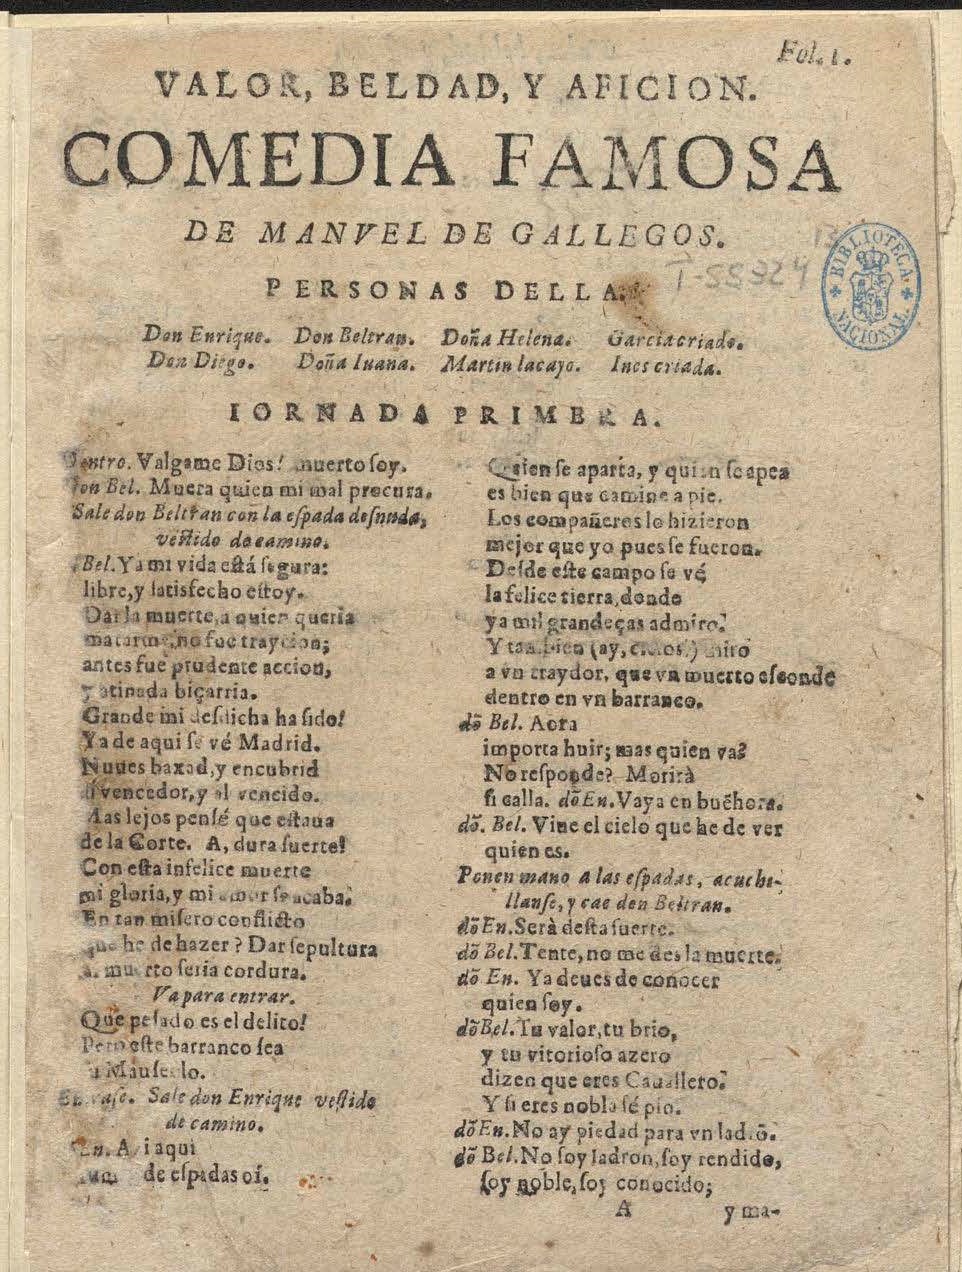 Fol. 1.
VALOR, BELDAD, Y AFICION.
COMEDIA FAMOSA
DE MANVEL DE GALLEGOS.
T-55324
BIBLIOTECA NACIONAL
PERSONAS DELLA.
Don Enrique. Don Beltran. Doña Helena. Garcia criado.
Don Diego. Doña Iuana. Martin lacayo. Ines criada.
IORNADA PRIMERA.
Dentro. Valgame Dios! muerto soy.
Don Bel. Muera quien mi mal procura.
Sale don Beltran con la espada desnuda,
vestido de camino.
Bel. Ya mi vida està segura:
libre, y satisfecho estoy.
Dar la muerte, a quien queria
matarme, no fue traycion;
antes fue prudente accion,
y atinada biçarria.
Grande mi desdicha ha sido!
Ya de aqui se vé Madrid.
Nuues baxad, y encubrid
al vencedor, y al vencido.
Mas lejos pensé que estaua
de la Corte. A, dura suerte!
Con esta infelice muerte
mi gloria, y mi amor se acaba.
En tan misero conflicto
que he de hazer? Dar sepultura
al muerto seria cordura.
Va para entrar.
Que pesado es el delito!
Pero este barranco sea
su Mauseolo.
Entrase. Sale don Enrique vestido
de camino.
En. A i aqui
de espadas oí.
Quien se aparta, y quien se apea
es bien que camine a pie.
Los compañeros lo hizieron
mejor que yo pues se fueron.
Desde este campo se vé
la felice tierra, donde
ya mil grandeças admiro.
Y tambien (ay, cielos!) miro
a vn traydor, que vn muerto esconde
dentro en vn barranco.
dõ Bel. Aora
importa huir; mas quien va?
No responde? Morirà
si calla. dõ En. Vaya en buẽ hora.
dõ. Bel. Viue el cielo que he de ver
quien es.
Ponen mano a las espadas, acuchi-
llanse, y cae don Beltran.
dõ En. Serà desta suerte.
dõ Bel. Tente, no me des la muerte.
dõ En. Ya deues de conocer
quien soy.
dõ Bel. Tu valor, tu brio,
y tu vitorioso azero
dizen que eres Cauallero.
Y si eres noble sé pio.
dõ En. No ay piedad para vn ladrõ.
dõ Bel. No soy ladron, soy rendido,
soy noble, soy conocido;
A y ma-